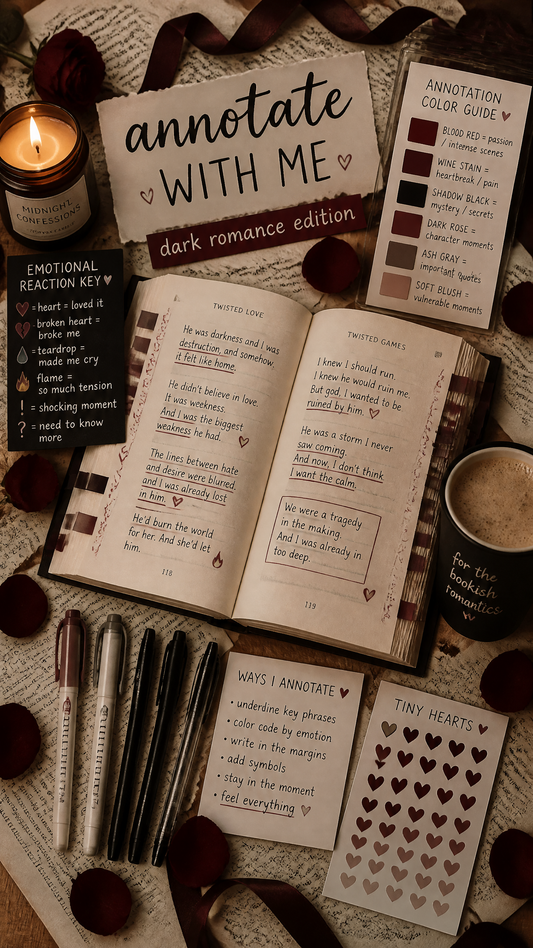 annotate
WITH ME
dark romance edition
MIDNIGHT
CONFESSIONS
ANNOTATION
COLOR GUIDE
BLOOD RED = passion
/ intense scenes
WINE STAIN =
heartbreak / pain
SHADOW BLACK =
mystery / secrets
DARK ROSE =
character moments
ASH GRAY =
important quotes
SOFT BLUSH =
vulnerable moments
EMOTIONAL
REACTION KEY
= heart = loved it
= broken heart =
broke me
= teardrop =
made me cry
flame =
so much tension
! = shocking moment
? = need to know
more
TWISTED LOVE
He was darkness and I was
destruction, and somehow,
it felt like home.
He didn't believe in love.
It was weekness.
And I was the biggest
weakness he had.
The lines between hate
and desire were blurred,
and I was already lost
in him.
He'd burn the world
for her. And she'd let
him.
118
TWISTED GAMES
I knew I should run.
I knew he would ruin me.
But god, I wanted to be
ruined by him.
He was a storm I never
saw coming.
And now, I don't think
I want the calm.
We were a tragedy
in the making.
And I was already in
too deep.
119
for the
bookish
romantics
WAYS I ANNOTATE
• underline key phrases
• color code by emotion
• write in the margins
• add symbols
• stay in the moment
• feel everything
TINY HEARTS